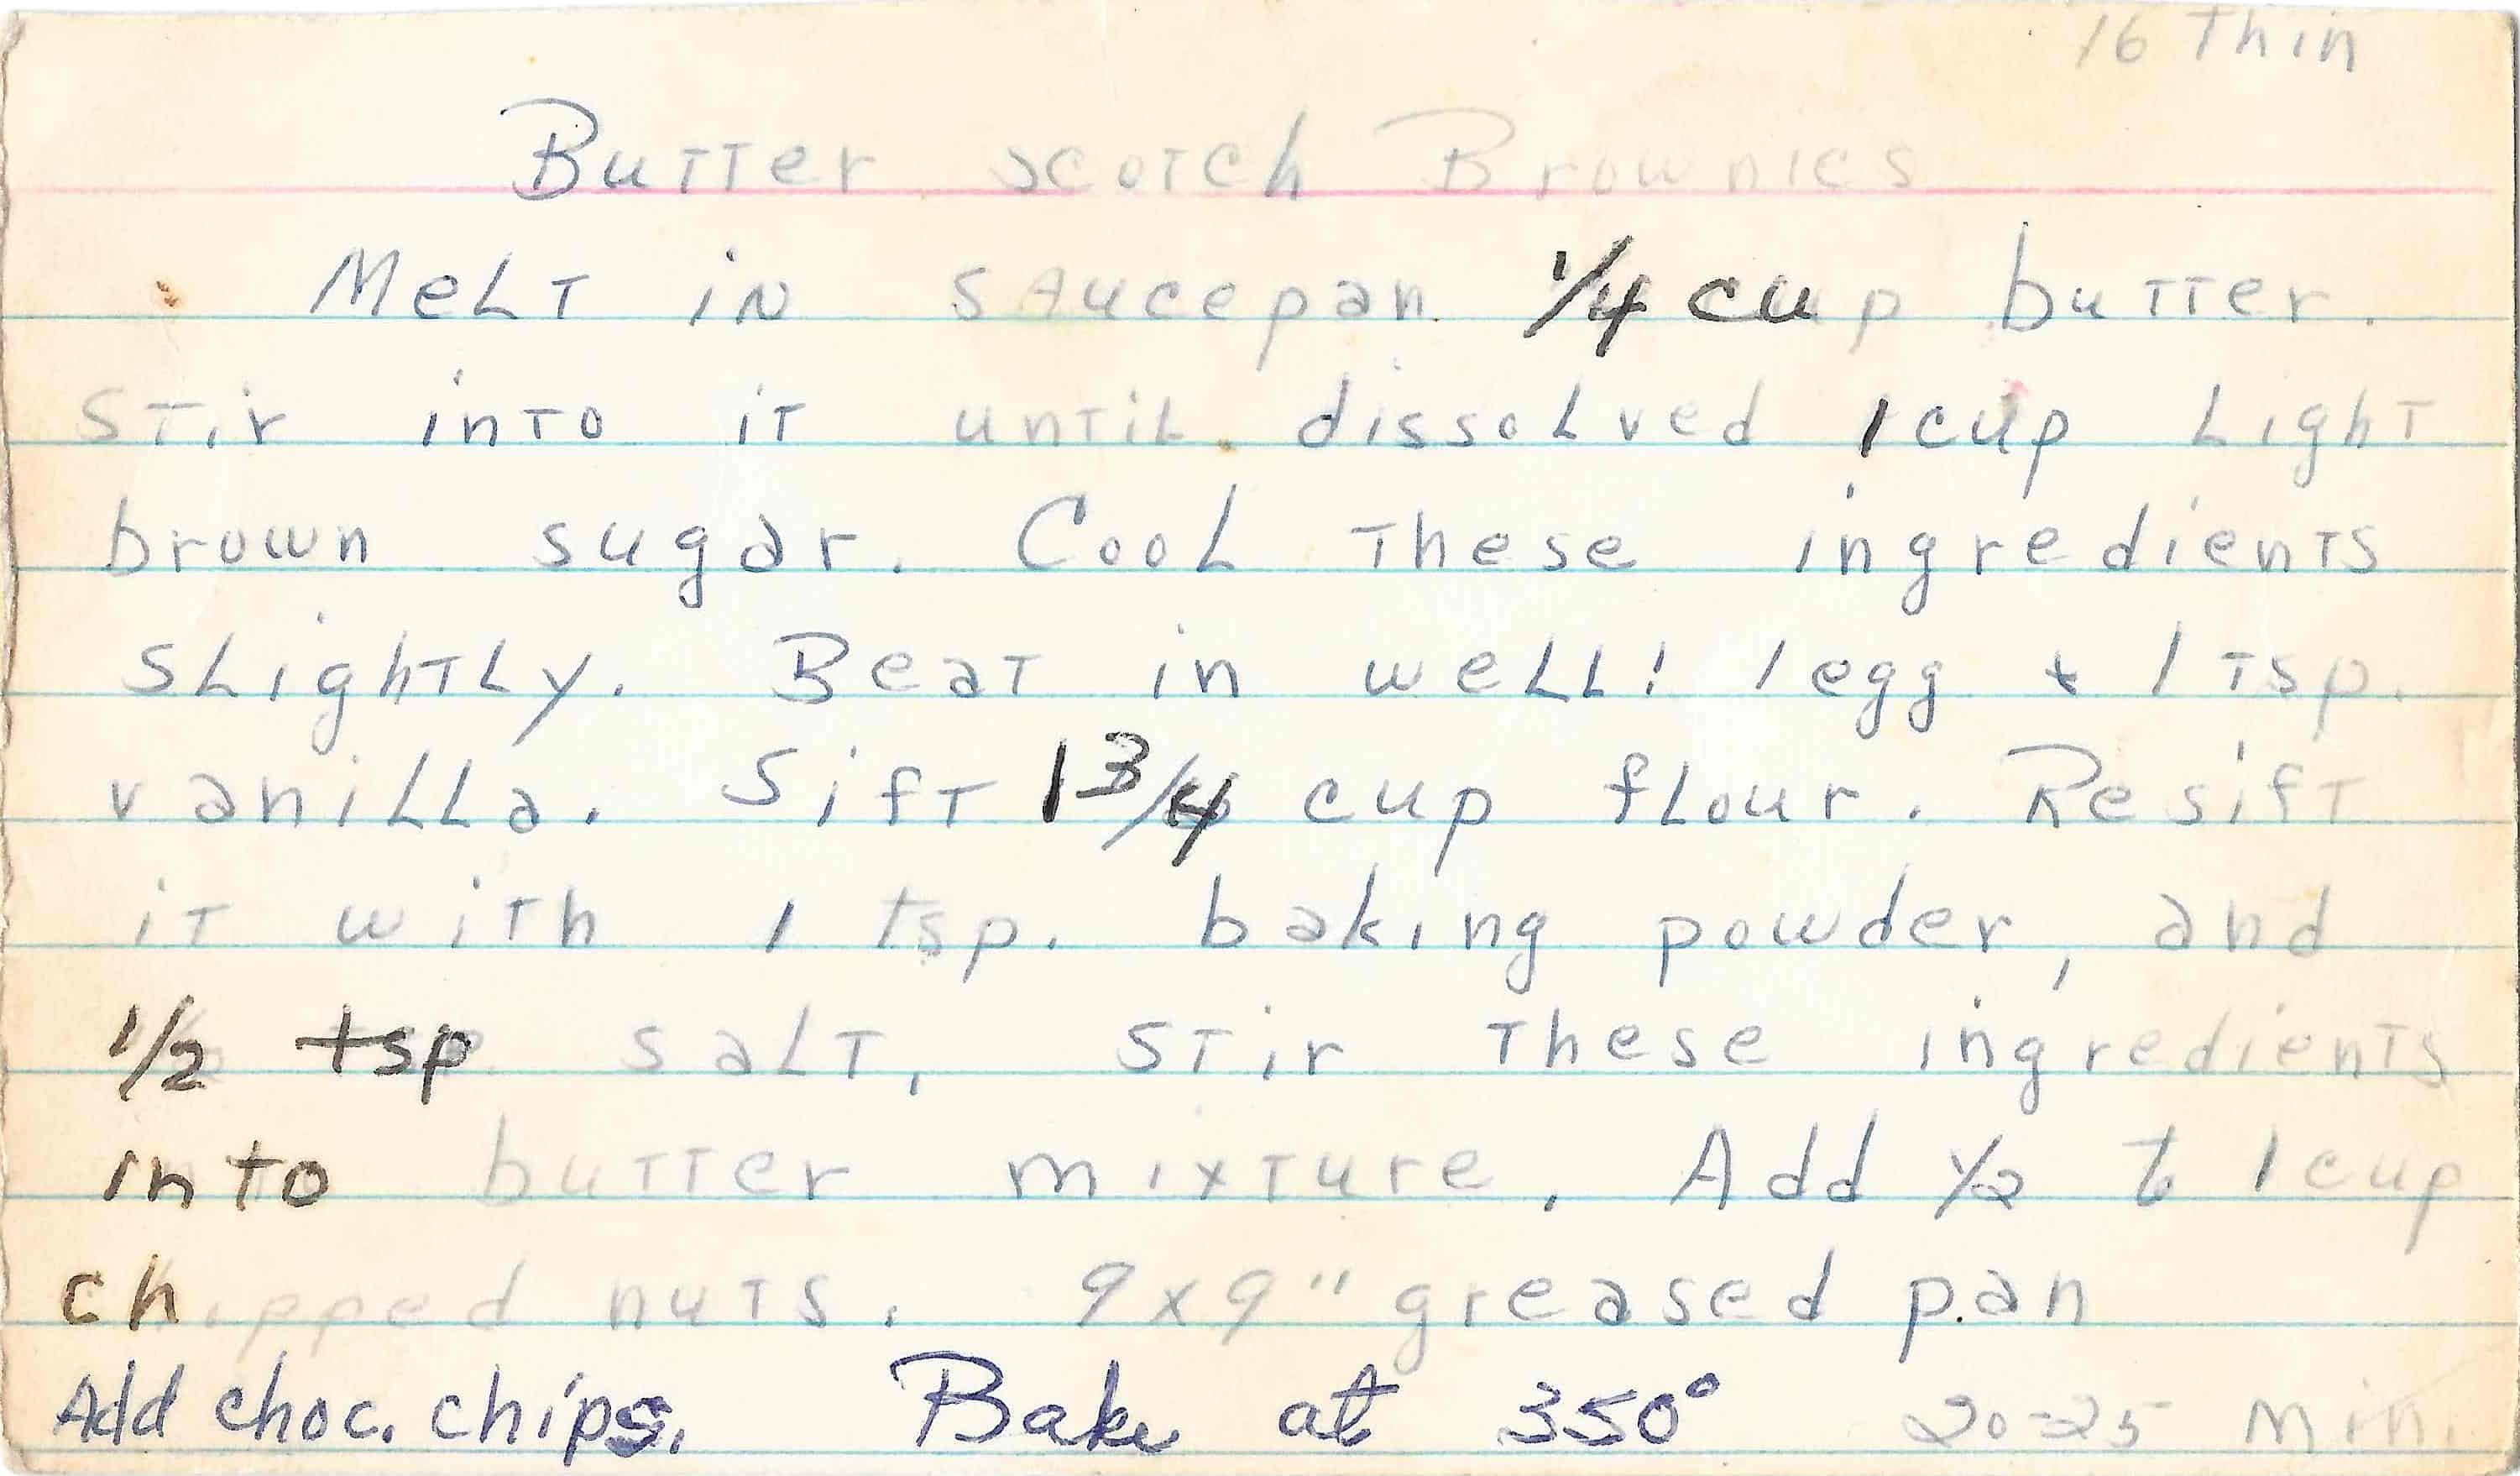 16 Thin
Butter scotch Brownies
Melt in saucepan 1/4 cup butter.
Stir into it until dissolved 1 cup Light
brown sugar. Cool these ingredients
slightly. Beat in well! 1 egg + 1 Tsp.
vanilla. Sift 1 3/4 cup flour. Resift
it with 1 tsp. baking powder, and
1/2 tsp salt, stir these ingredients
into butter mixture. Add 1/2 to 1 cup
chipped nuts. 9x9" greased pan
Add choc. chips. Bake at 350° 20-25 Min.